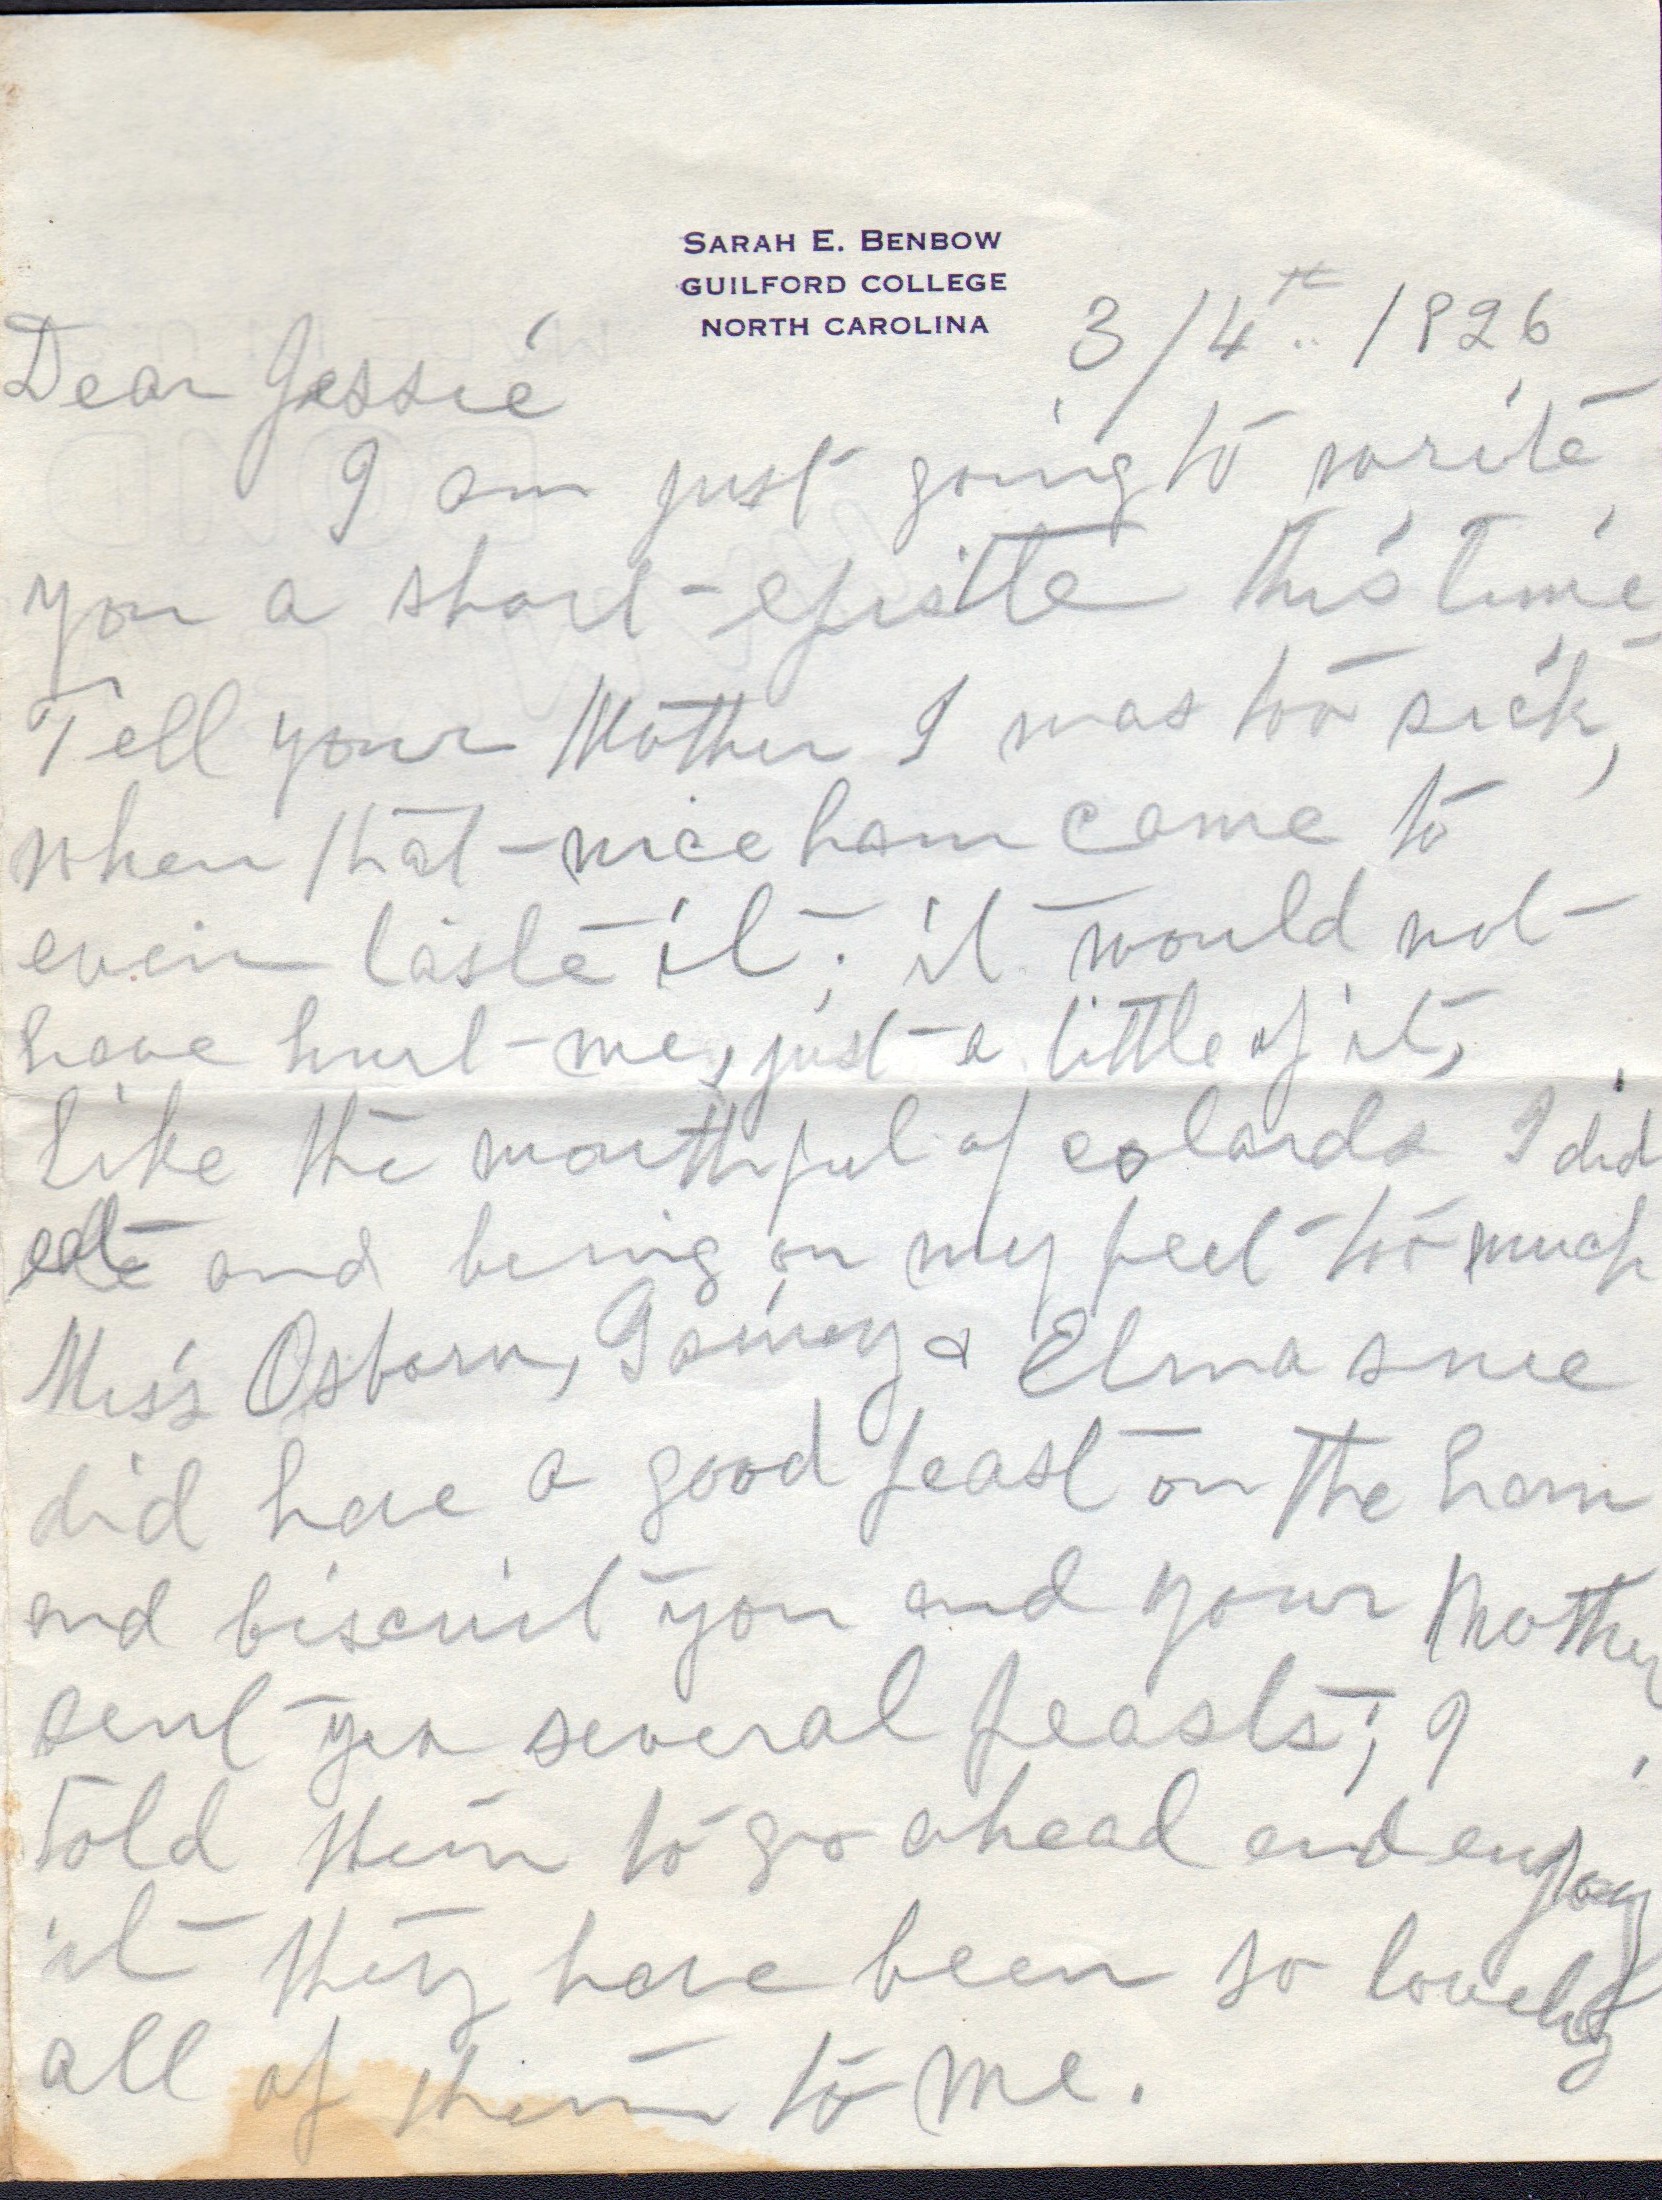 SARAH E. BENBOW
GUILFORD COLLEGE
NORTH CAROLINA
3/4th.. 1926
Dear Jessie
I am just going to write
you a short epistle this time
Tell your Mother I was too sick,
when that nice ham came to
even taste it; it would not
have hurt me, just a little of it,
like the mouthful of colards I did
eat and being on my feet too much
Miss Osborn, & Elma sure
did have a good feast on the ham
and biscuit you and your Mother
sent yea several feasts; I
told them to go ahead and enjoy
it they have been so lovely
all of them to me.